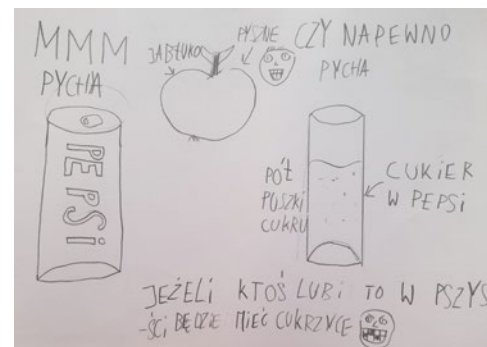 MMM
PYCHA
JABŁUKO
PYSZNE
CZY NAPEWNO
PYCHA
PEPSi
PÓŁ
PUSZKI
CUKRU
CUKiER
W PEPSi
JEŻELi KTOŚ LUBi TO W PSZYS
-ŚCi BĘDZIE MIEĆ CUKRZYCE